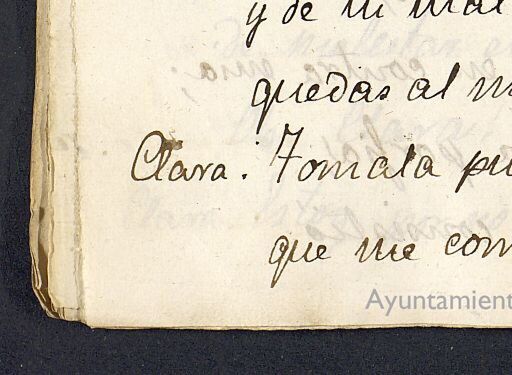 y de mi mal
quedas al m
Clara. Tomala pu
que me com
Ayuntamient